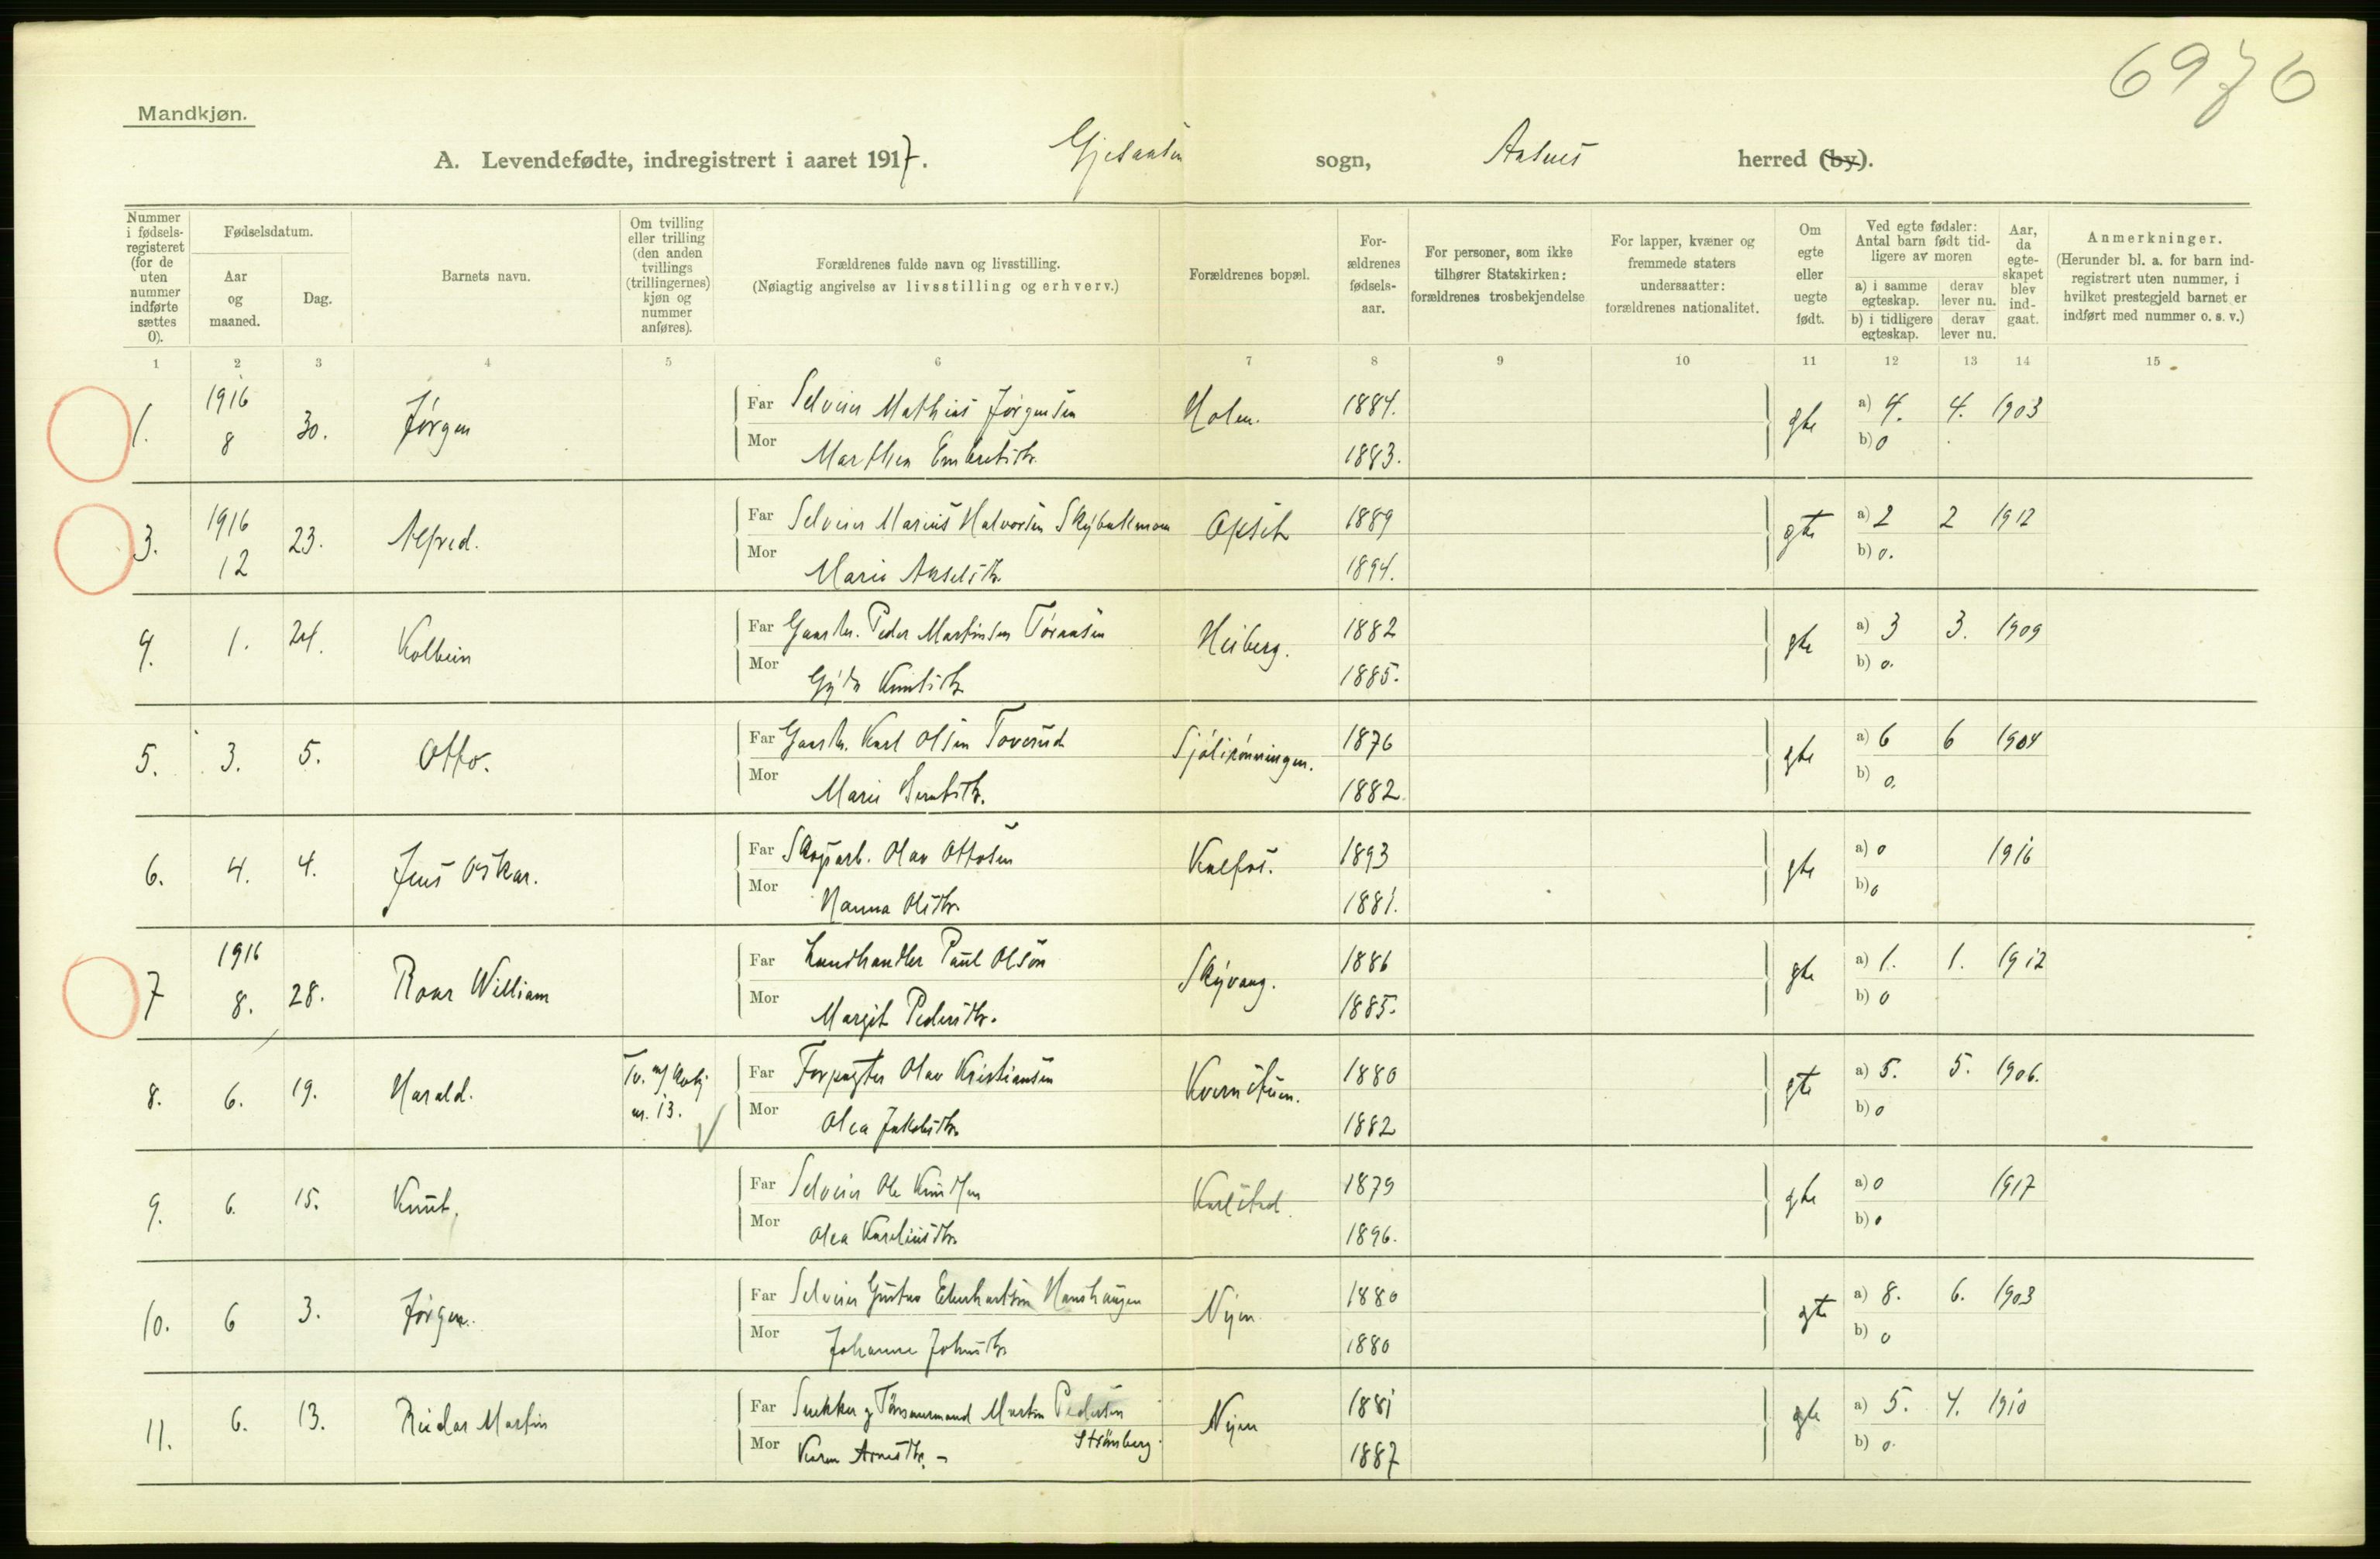 6976
Mandkjøn.
A. Levendefødte, indregistrert i aaret 1917. Gjesaasen sogn, Aasnes herred (by).
Nummer i fødsels-registeret (for de uten nummer indførte sættes 0).
Fødselsdatum.
Aar og maaned.
Dag.
Barnets navn.
Om tvilling eller trilling (den anden tvillings (trillingernes) kjøn og nummer anføres).
Forældrenes fulde navn og livsstilling.
(Nøiagtig angivelse av livsstilling og erhverv.)
Forældrenes bopæl.
For-ældrenes fødsels-aar.
For personer, som ikke tilhører Statskirken: forældrenes trosbekjendelse
For lapper, kvæner og fremmede staters undersaatter: forældrenes nationalitet.
Om egte eller uegte født.
Ved egte fødsler: Antal barn født tid-ligere av moren
a) i samme egteskap.
derav lever nu.
b) i tidligere egteskap.
derav lever nu.
Aar, da egte-skapet blev ind-gaat.
Anmerkninger.
(Herunder bl. a. for barn ind-registrert uten nummer, i hvilket prestegjeld barnet er indført med nummer o. s. v.)
1 2 3 4 5 6 7 8 9 10 11 12 13 14 15
1. 1916 8 30. Jørgen Far Selveier Mathias Jørgensen Holen. 1884. gte a) 4. 4. 1903
Mor Marthea Embretsdtr. 1883. b) 0
3. 1916 12 23. Alfred. Far Selveier Marius Halvorsen Skybakmoen Opset 1889 gte a) 2 2 1912
Mor Marie Akselsdtr. 1894. b) 0.
4. 1. 24. Kolbein Far Gaardbr. Peder Martinsen Töraasen Heiberg. 1882 gte a) 3 3. 1909
Mor Gyda Knutsdtr. 1885. b) 0.
5. 3. 5. Otto. Far Gaardbr. Karl Olsen Toverud Sjölirönningen. 1876 gte a) 6 6 1904
Mor Marie Berntsdtr. 1882. b) 0.
6. 4. 4. Jens Oskar. Far Skogsarb. Olav Ottosen Kalfos. 1893 gte a) 0 1916
Mor Hanna Olsdtr. 1881. b) 0
7 1916 8. 28. Roar William Far Landhandler Paul Olson Skyvang. 1886 gte a) 1. 1. 1912
Mor Margit Pedersdtr. 1885. b) 0
8. 6. 19. Harald. Tv. m/ kvkj nr. 13. Far Forpagter Olav Kristiansen Kvernstuen. 1880 gte a) 5. 5. 1906.
Mor Olea Jakobsdtr. 1882 b) 0
9. 6. 15. Knut. Far Selveier Ole Knudsen Karlstad. 1879 gte a) 0 1917
Mor Olea Kareliusdtr. 1896. b) 0
10. 6 3. Jörgen. Far Selveier Gustav Ekerhartsen Hanshaugen Nyen 1880 gte a) 8. 6. 1903
Mor Johanne Johnsdtr. 1880 b) 0
11. 6. 13. Reidar Martin Far Snekker og Tömmermand Martin Pedersen Strömberg. Nyen 1881 gte a) 5. 4. 1910
Mor Karen Arnesdtr. - 1887 b) 0.